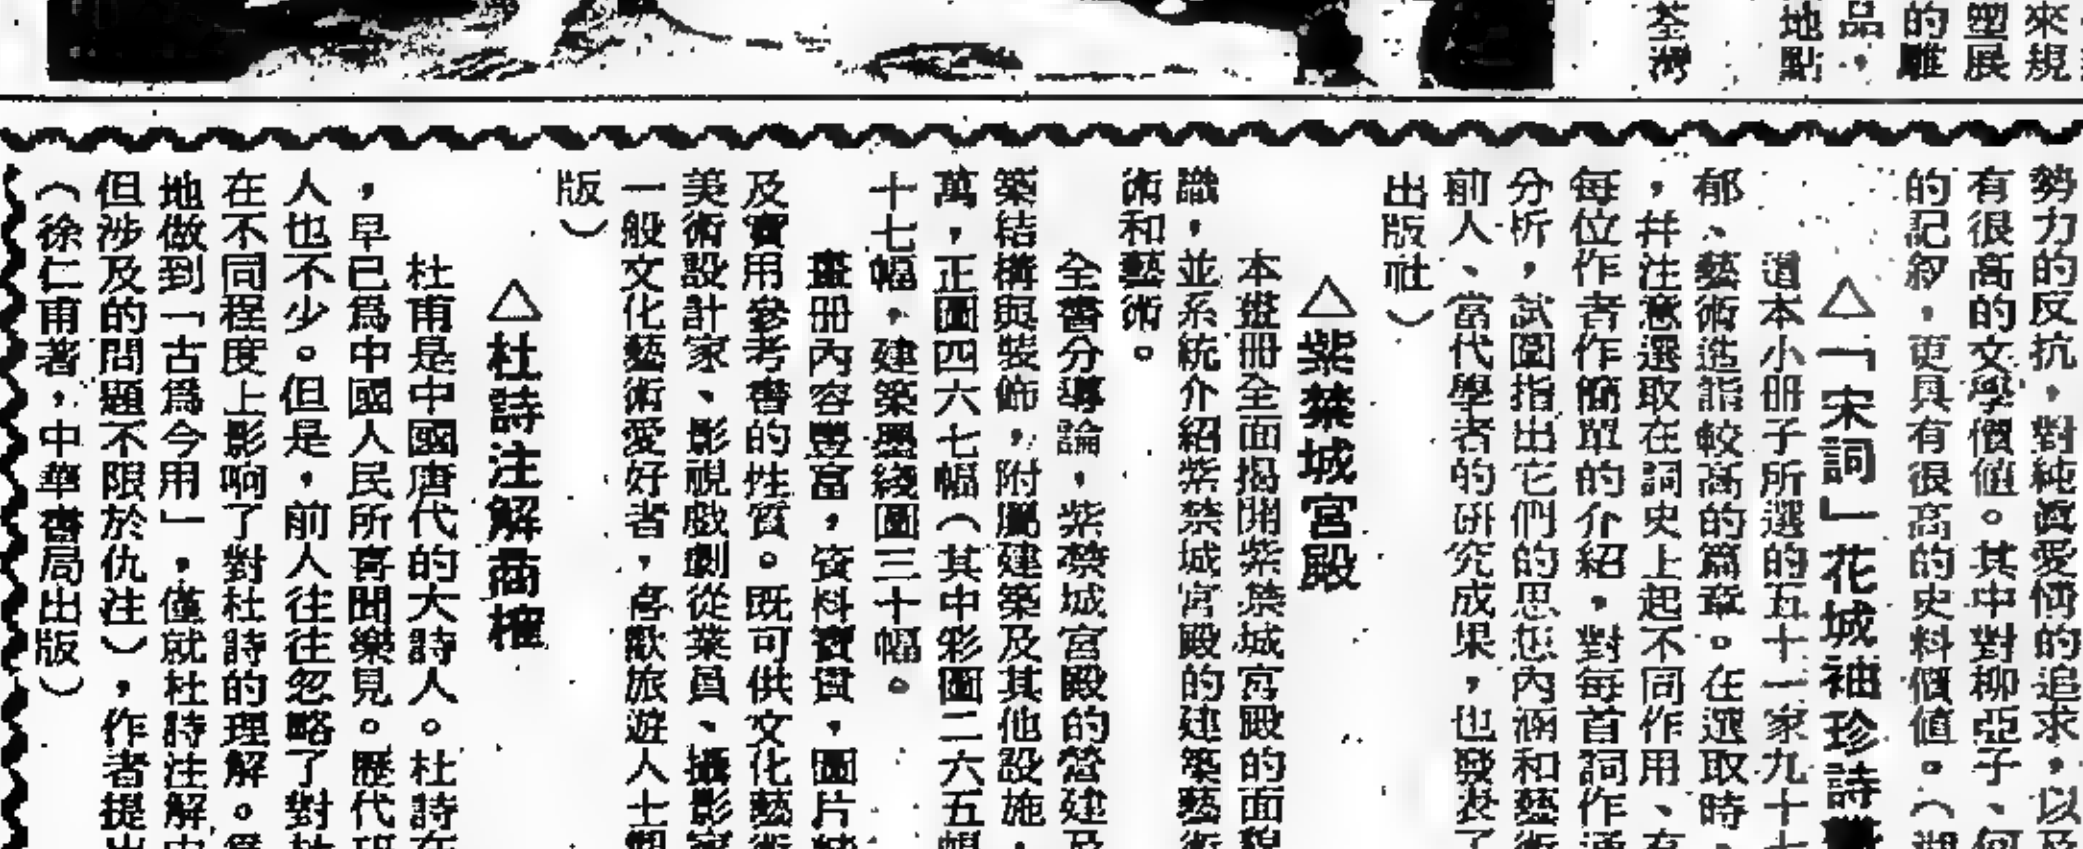 來規
塑展
的雕
品，
地點
荃灣
勢力的反抗，對純眞愛情的追求，以及
有很高的文學價値。其中對柳亞子、何
的記叙，更具有很高的史料價値。（湖
△「宋詞」花城袖珍詩
這本小册子所選的五十一家九十七
郁、藝術造詣較高的篇章。在選取時、
，幷注意選取在詞史上起不同作用、有
每位作者作簡單的介紹，對每首詞作通
分析，試圖指出它們的思想內涵和藝術
前人、當代學者的硏究成果，也發表了
出版社）
△紫禁城宮殿
本畫册全面揭開紫禁城宮殿的面貌
識，並系統介紹紫禁城宮殿的建築藝術
術和藝術。
全書分導論，紫禁城宮殿的營建及
築結構與裝飾，附屬建築及其他設施，
萬，正圖四六七幅（其中彩圖二六五幅
十七幅，建築墨綫圖三十幅。
畫册內容豐富，資料寶貴，圖片
及實用參考書的性質。既可供文化藝術
美術設計家、影視戲劇從業員、攝影家
一般文化藝術愛好者，喜歡旅遊人士
版）
△杜詩注解商榷
杜甫是中國唐代的大詩人。杜詩在
，早已爲中國人民所喜聞樂見。歷代硏
人也不少。但是，前人往往忽略了對杜
在不同程度上影响了對杜詩的理解。爲
地做到「古爲今用」，僅就杜詩注解中
但涉及的問題不限於仇注），作者提出
（徐仁甫著，中華書局出版）